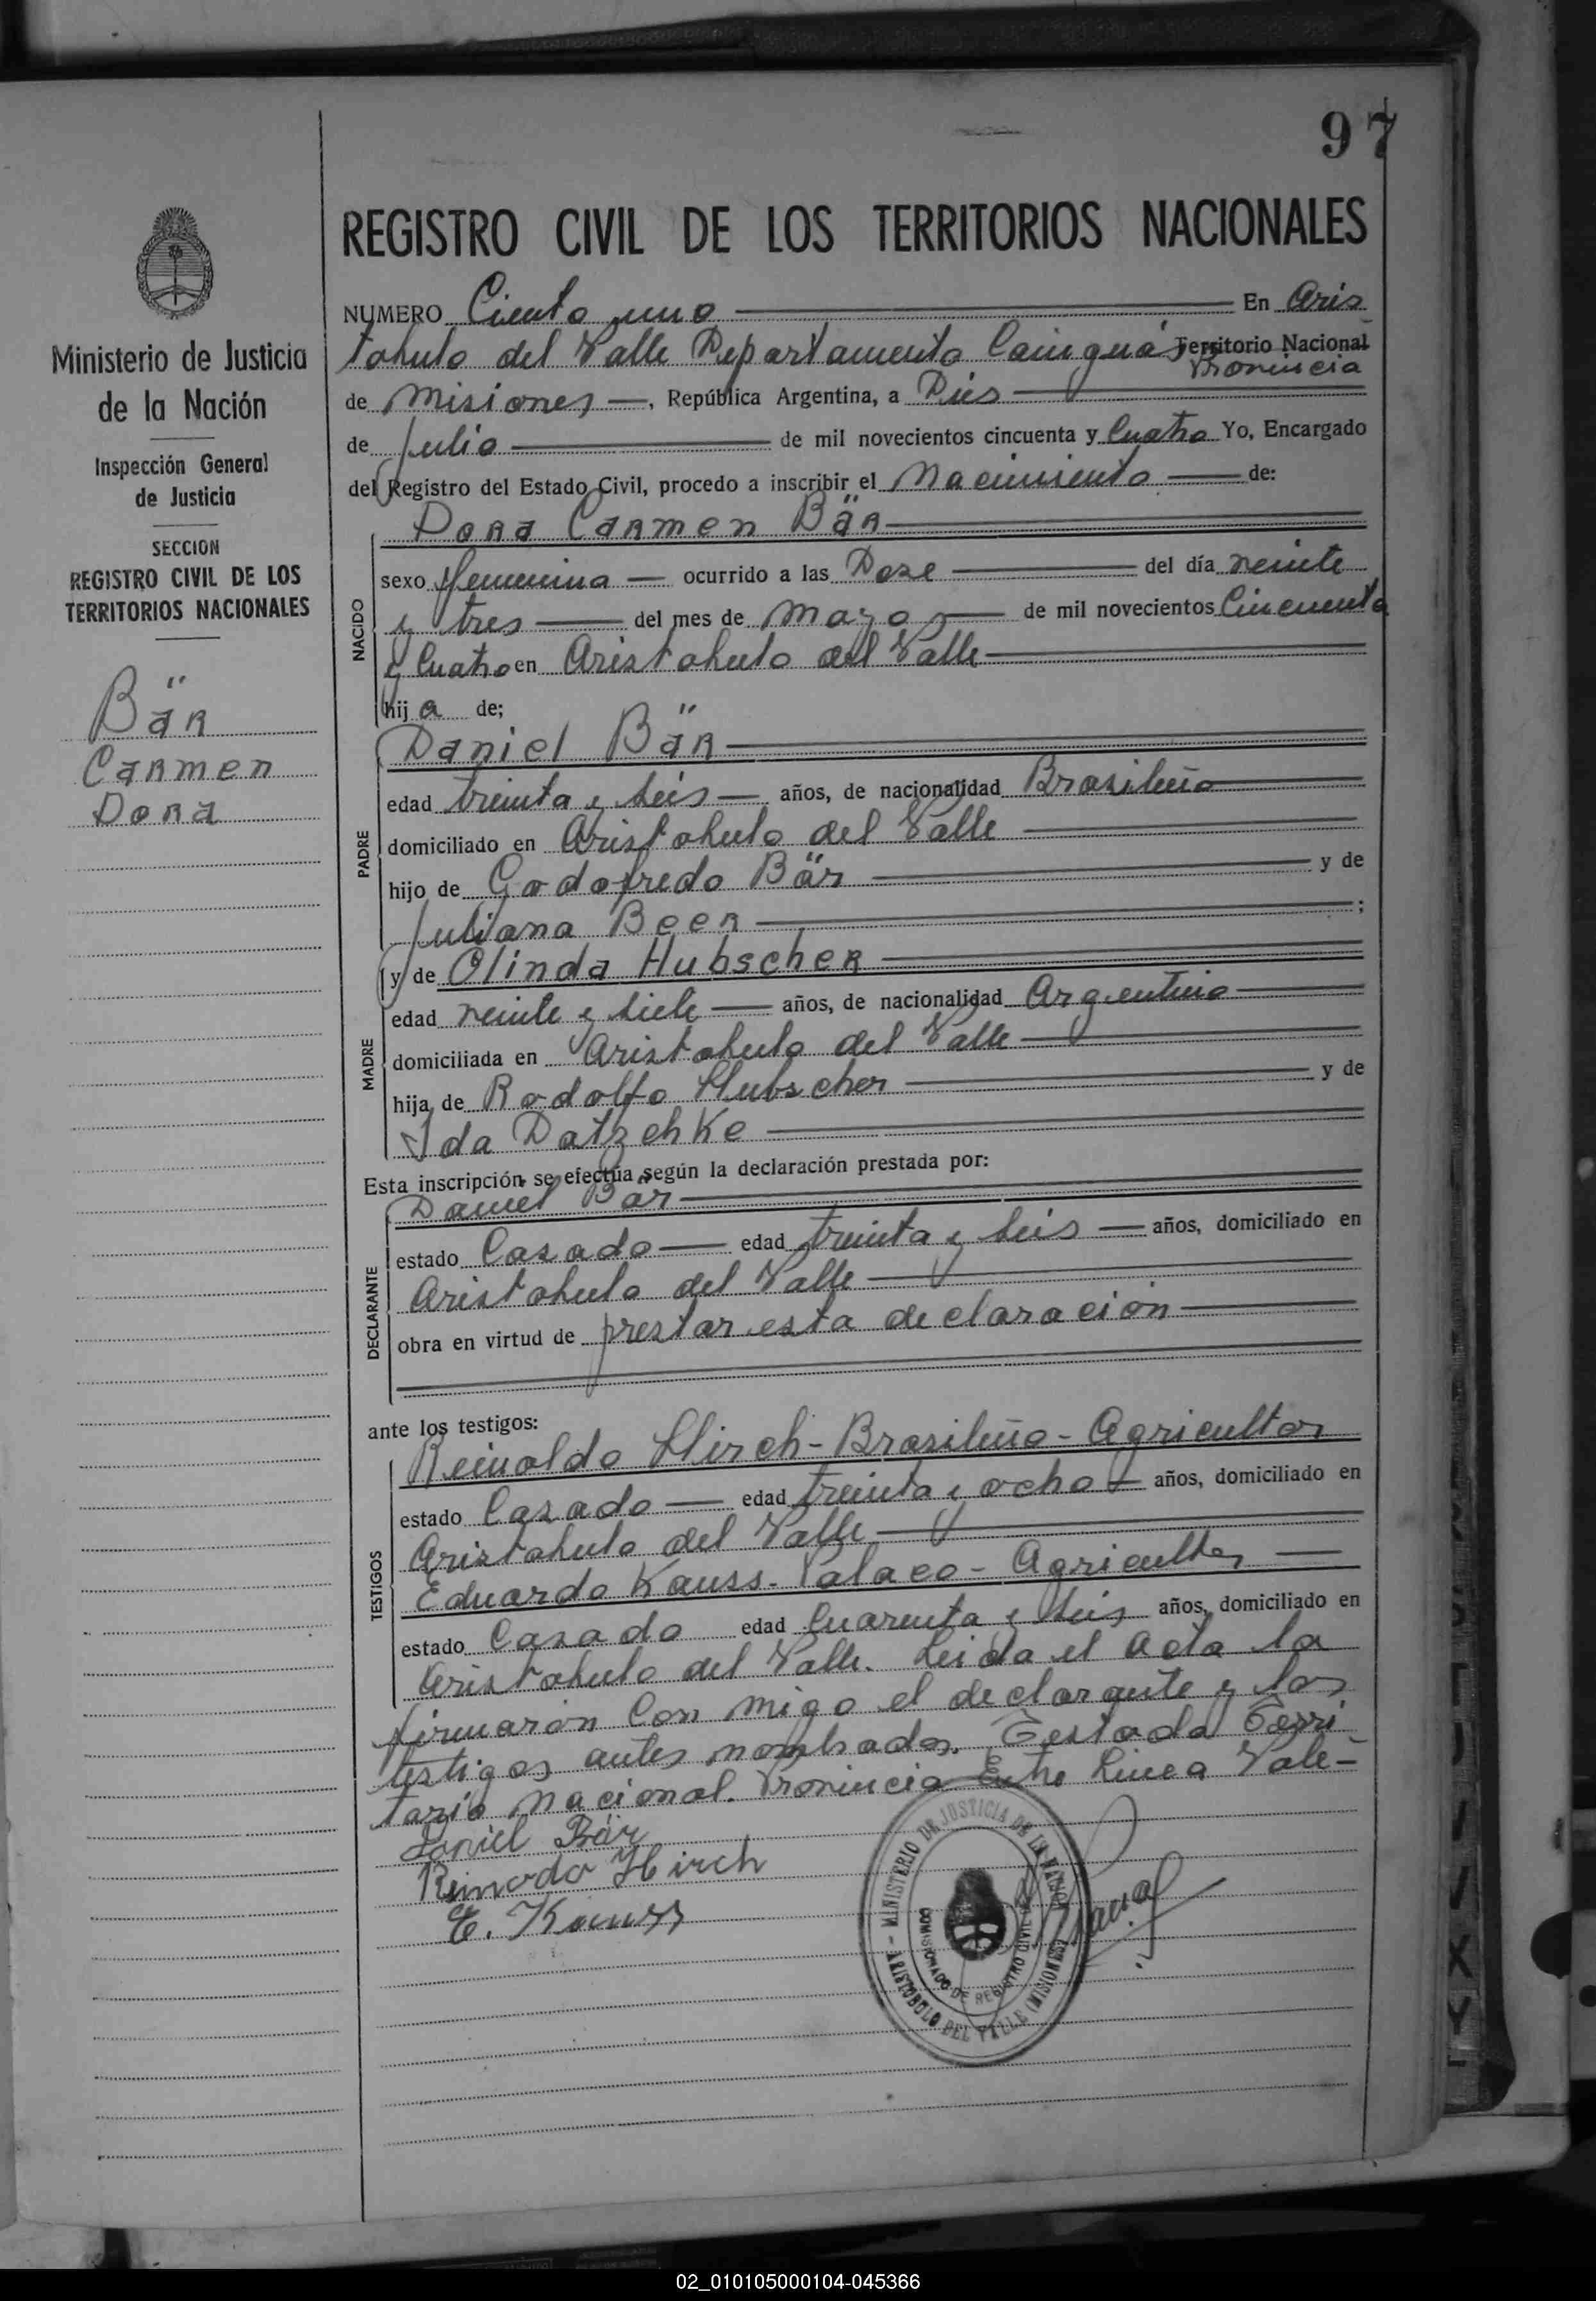 97
REGISTRO CIVIL DE LOS TERRITORIOS NACIONALES
Ministerio de Justicia
de la Nación
Inspección General
de Justicia
SECCION
REGISTRO CIVIL DE LOS
TERRITORIOS NACIONALES
Bär
Carmen
Dora
NUMERO Ciento uno En Aris
tobulo del Valle Departamento Cainguás Territorio Nacional
Provincia
de Misiones, República Argentina, a Diés
de Julio de mil novecientos cincuenta y Cuatro Yo, Encargado
del Registro del Estado Civil, procedo a inscribir el Nacimiento de:
Dora Carmen Bär
NACIDO
sexo femenina ocurrido a las Doze del día veinte
y tres del mes de Mayo de mil novecientos Cincuenta
y Cuatro en Aristobulo del Valle
hij a de;
Daniel Bär
PADRE
edad treinta y seis años, de nacionalidad Brasileño
domiciliado en Aristobulo del Valle
hijo de Godofredo Bär y de
Juliana Beer ;
y de Olinda Hubscher
MADRE
edad veinte y siete años, de nacionalidad Argentina
domiciliada en Aristobulo del Valle
hija de Rodolfo Hubscher y de
Ida Datzchke
Esta inscripción se efectúa según la declaración prestada por:
Daniel Bär
DECLARANTE
estado Casado edad treinta y seis años, domiciliado en
Aristobulo del Valle
obra en virtud de prestar esta declaración
ante los testigos:
Reinoldo Hirch - Brasileño - Agricultor
TESTIGOS
estado Casado edad treinta y ocho años, domiciliado en
Aristobulo del Valle
Eduardo Kauss - Polaco - Agricultor
estado Casado edad Cuarenta y seis años, domiciliado en
Aristobulo del Valle. Leida el Acta la
firmarón Con migo el declarante y los
testigos antes nombrados. Testado Terri
torio Nacional. Provincia Entre Linea Vale-
Daniel Bär
Reinodo Hirch
E. Kauss
MINISTERIO DE JUSTICIA DE LA NACION
COMISIONADO DE REGISTRO CIVIL
ARISTOBULO DEL VALLE (MISIONES)
02_010105000104-045366